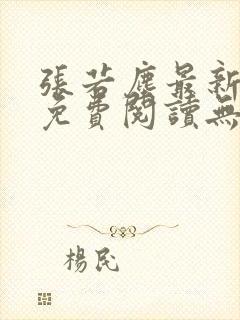 張若塵最新
免費閱讀無
楊民